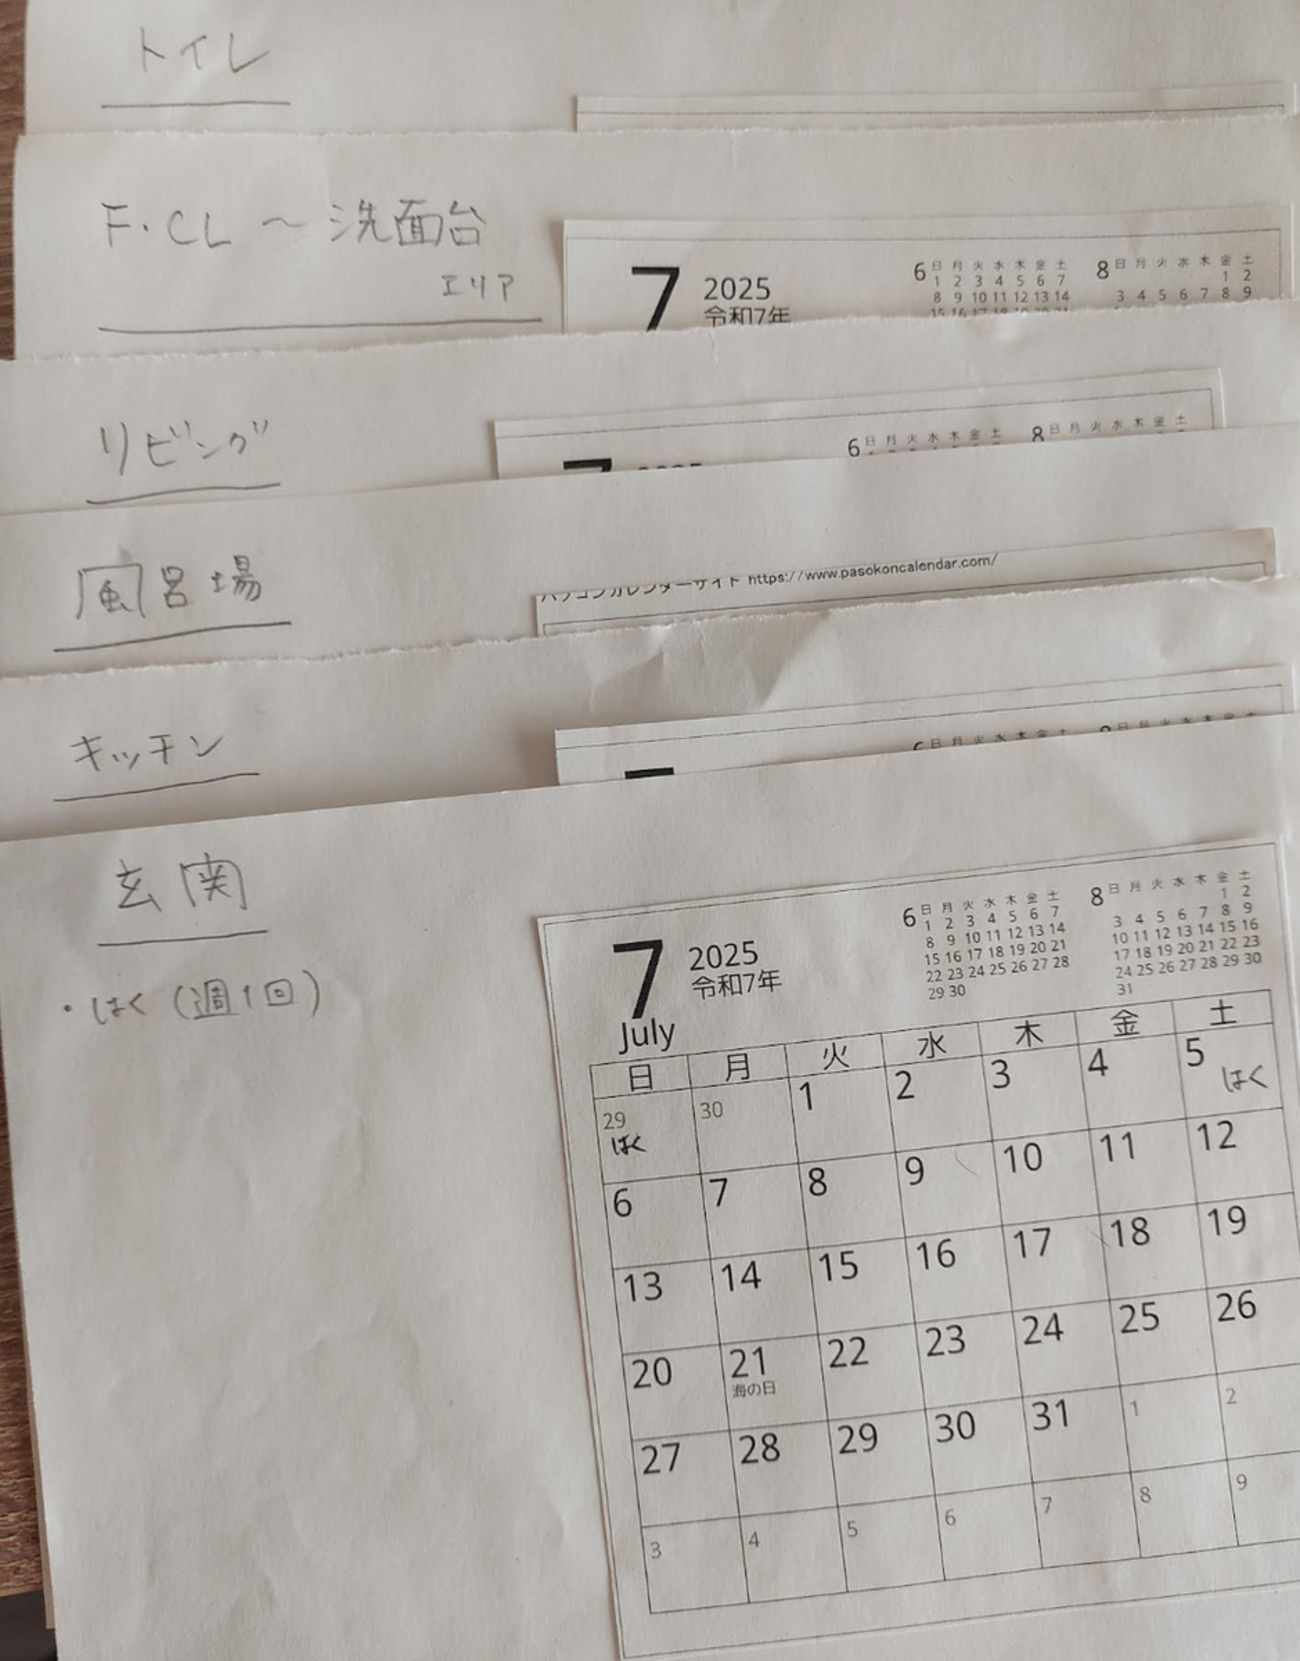 トイレ
F・CL 〜 洗面台
エリア
7
2025
令和7年
6 日 月 火 水 木 金 土
1 2 3 4 5 6 7
8 9 10 11 12 13 14
8 日 月 火 水 木 金 土
1 2
3 4 5 6 7 8 9
リビング
6 日 月 火 水 木 金 土
8 日 月 火 水 木 金 土
風呂場
パソコンカレンダーサイト https://www.pasokoncalendar.com/
キッチン
日 月 火 水 木 金 土
日 月 火 水 木 金 土
玄関
・はく (週1回)
7
July
2025
令和7年
6 日 月 火 水 木 金 土
1 2 3 4 5 6 7
8 9 10 11 12 13 14
15 16 17 18 19 20 21
22 23 24 25 26 27 28
29 30
8 日 月 火 水 木 金 土
1 2
3 4 5 6 7 8 9
10 11 12 13 14 15 16
17 18 19 20 21 22 23
24 25 26 27 28 29 30
31
日 月 火 水 木 金 土
29 30 1 2 3 4 5
はく はく
6 7 8 9 10 11 12
13 14 15 16 17 18 19
20 21 22 23 24 25 26
海の日
27 28 29 30 31 1 2
3 4 5 6 7 8 9